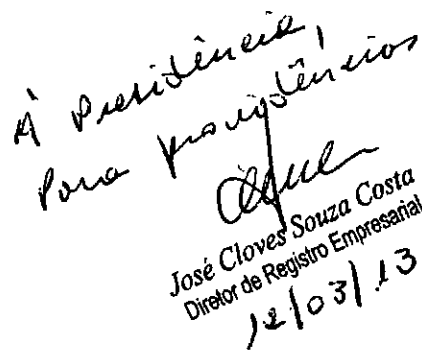 À Presidência,
Para providências
José Cloves Souza Costa
Diretor de Registro Empresarial
12/03/13